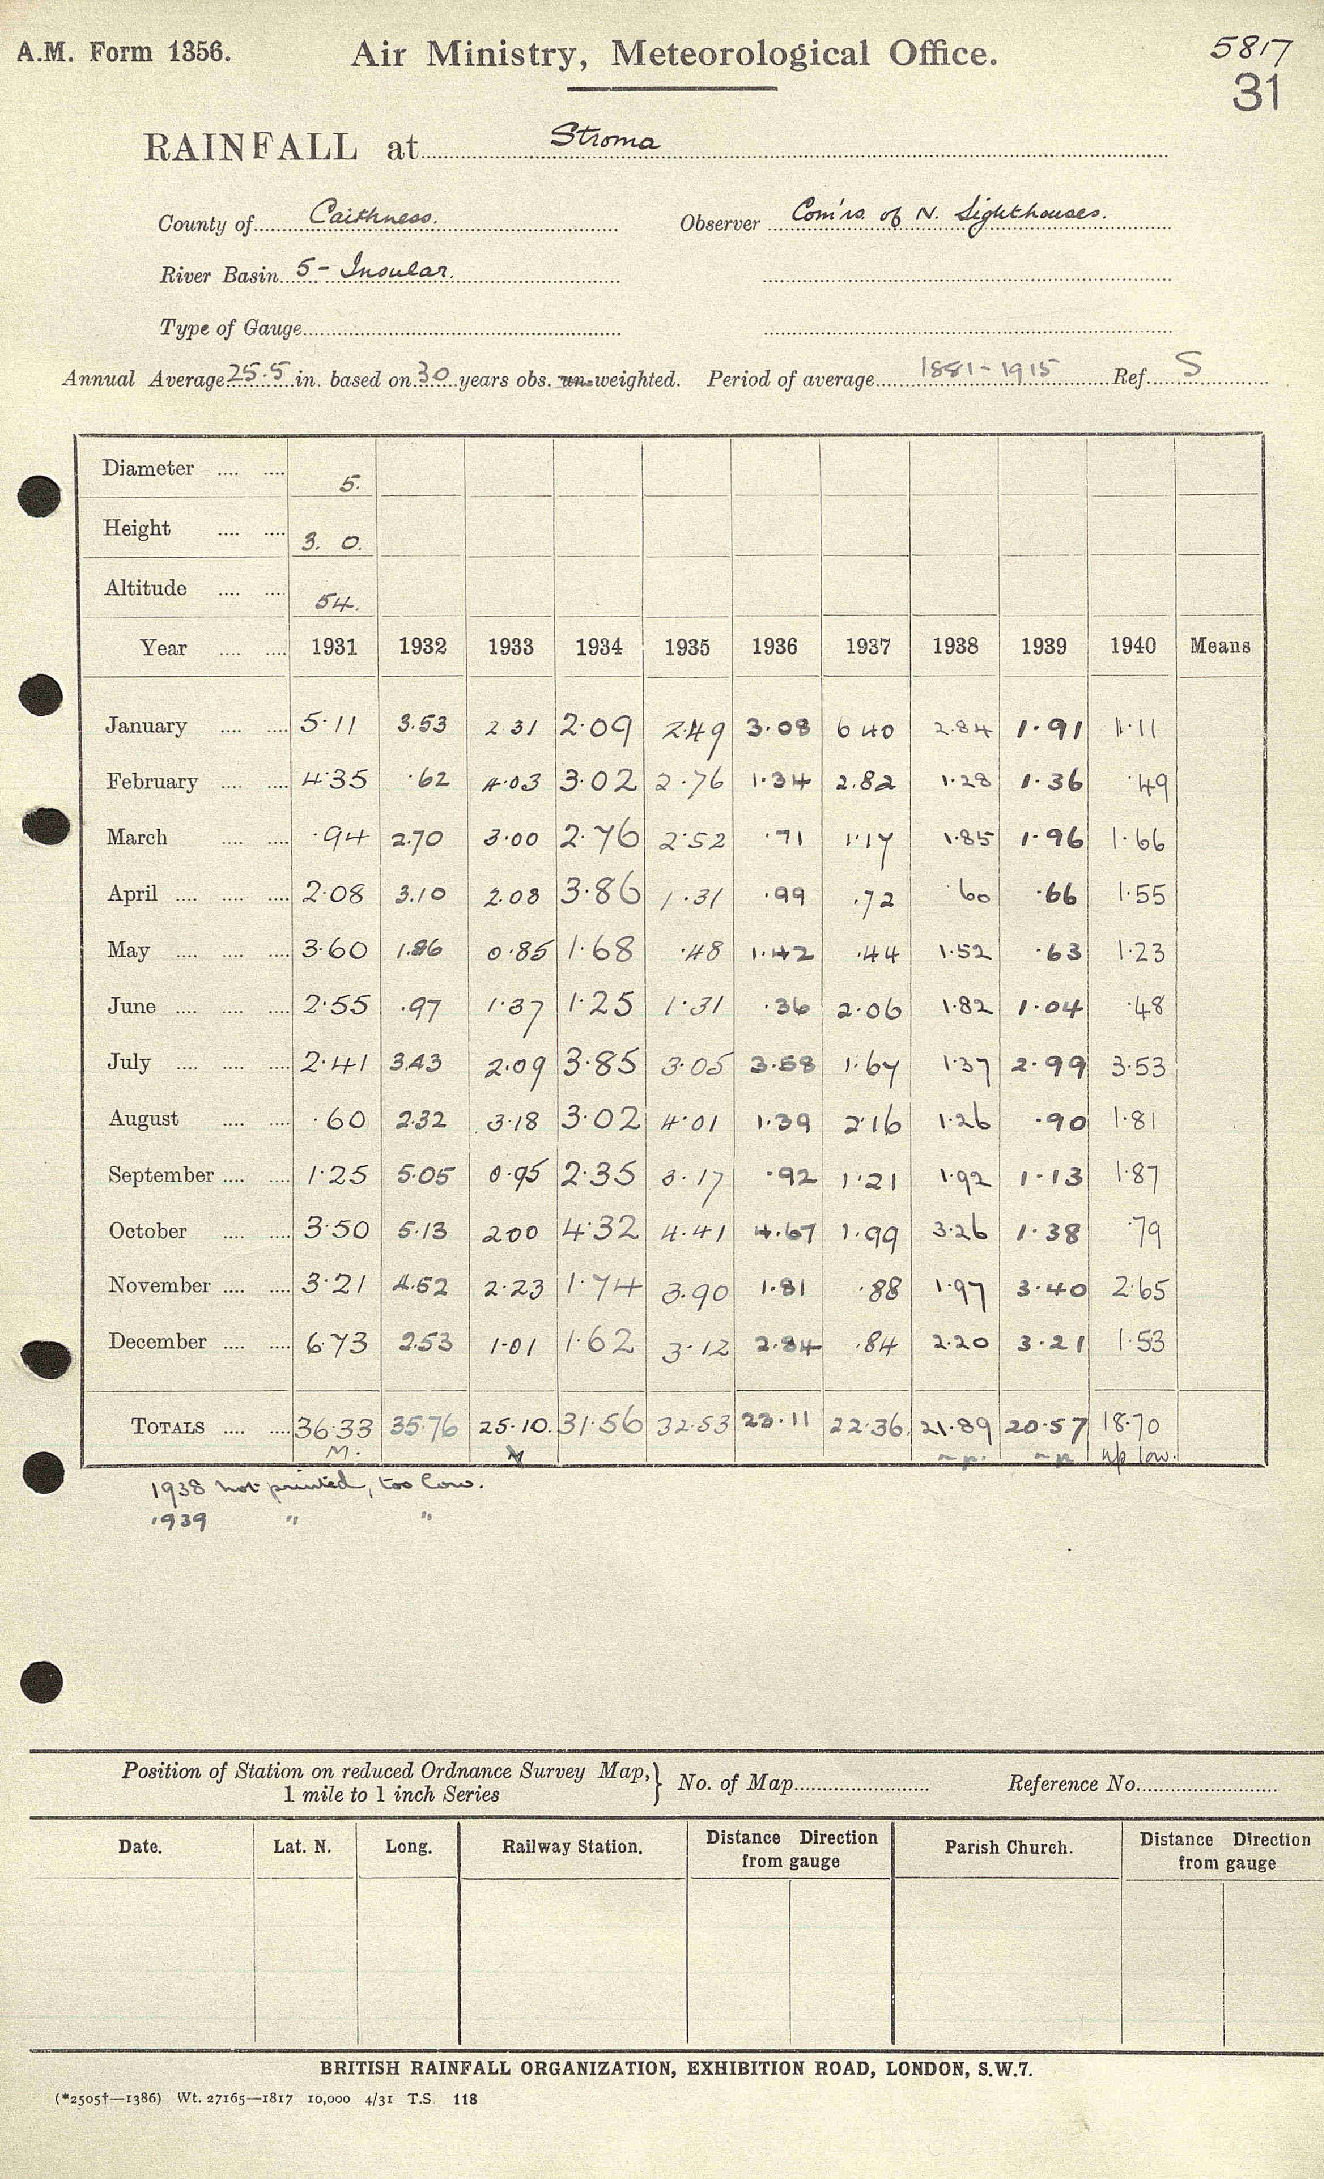 A.M. Form 1356.
Air Ministry, Meteorological Office.
5817
31
RAINFALL at Stroma
County of Caithness. Observer Com'rs. of N. Lighthouses.
River Basin 5 - Insular.
Type of Gauge
Annual Average 25.5 in. based on 30 years obs. un-weighted. Period of average 1881-1915 Ref. S
Diameter 5.
Height 3. 0.
Altitude 54.
Year 1931 1932 1933 1934 1935 1936 1937 1938 1939 1940 Means
January 5.11 3.53 2.31 2.09 2.49 3.08 6.40 2.84 1.91 1.11
February 4.35 .62 4.03 3.02 2.76 1.34 2.82 1.28 1.36 .49
March .94 2.70 3.00 2.76 2.52 .71 1.17 1.85 1.96 1.66
April 2.08 3.10 2.08 3.86 1.31 .99 .72 .60 .66 1.55
May 3.60 1.86 0.85 1.68 .48 1.42 .44 1.52 .63 1.23
June 2.55 .97 1.37 1.25 1.31 .36 2.06 1.82 1.04 .48
July 2.41 3.43 2.09 3.85 3.05 3.58 1.67 1.37 2.99 3.53
August .60 2.32 3.18 3.02 4.01 1.39 2.16 1.26 .90 1.81
September 1.25 5.05 0.95 2.35 3.17 .92 1.21 1.92 1.13 1.87
October 3.50 5.13 2.00 4.32 4.41 4.67 1.99 3.26 1.38 .79
November 3.21 4.52 2.23 1.74 3.90 1.81 .88 1.97 3.40 2.65
December 6.73 2.53 1.01 1.62 3.12 2.84 .84 2.20 3.21 1.53
TOTALS 36.33 35.76 25.10. 31.56 32.53 23.11 22.36. 21.89 20.57 18.70
M. n.p. n.p. n/p low.
1938 not printed, too low.
1939 " "
Position of Station on reduced Ordnance Survey Map, 1 mile to 1 inch Series } No. of Map Reference No.
Date. Lat. N. Long. Railway Station. Distance Direction from gauge Parish Church. Distance Direction from gauge
BRITISH RAINFALL ORGANIZATION, EXHIBITION ROAD, LONDON, S.W.7.
(*2505†—1386) Wt. 27165—1817 10,000 4/31 T.S. 118